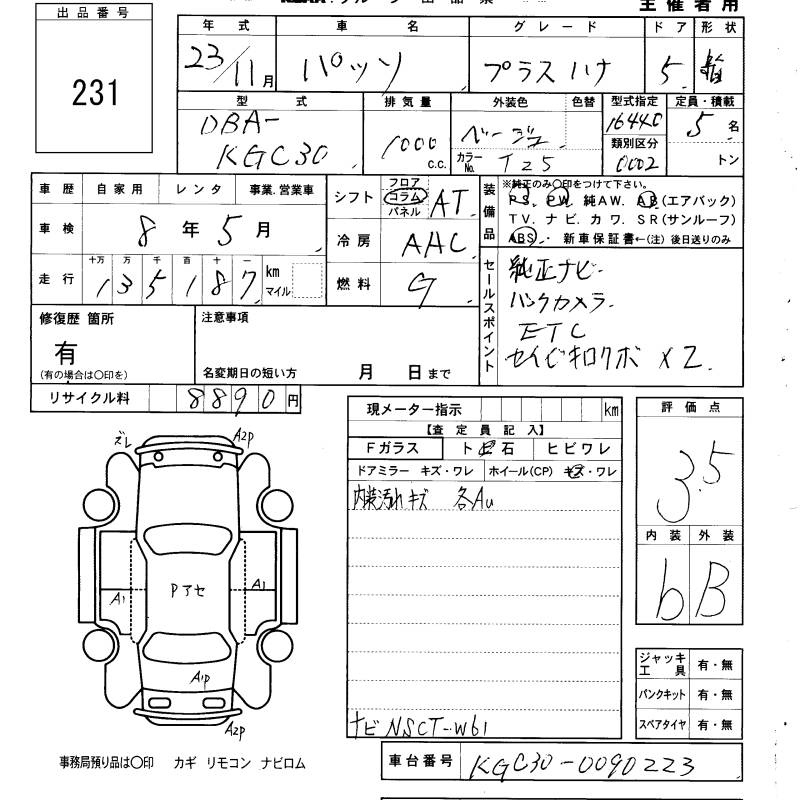 出品番号
231
主催者用
年式 車名 グレード ドア 形状
23/11月 パッソ プラスハナ 5
型式 排気量 外装色 色替 型式指定 定員・積載
DBA-
KGC30 1000 c.c. ベージュ 16440 5名
類別区分
カラーNo. T25 0002 トン
車歴 自家用 レンタ 事業.営業車
車検 8年5月
走行 十万 万 千 百 十 一
135187 km マイル
シフト フロア コラム パネル AT
冷房 AAC
燃料 G
装備品
※純正のみ〇印をつけて下さい。
PS. PW. 純AW. AB(エアバック)
TV. ナビ. カワ. SR(サンルーフ)
ABS. 新車保証書←(注)後日送りのみ
セールスポイント
純正ナビ
バックカメラ
ETC
修復歴 箇所
有
(有の場合は〇印を)
注意事項
名変期日の短い方 月 日まで
リサイクル料 8890円
現メーター指示 km
【査定員記入】
Fガラス ト石 ヒビワレ
ドアミラー キズ・ワレ ホイール(CP) キズ・ワレ
内装汚れキズ 各AU
ナビ NSCT-W61
評価点
3.5
内装 外装
b B
ズレ A2P
A1 Pアセ A1
A1P
A2P
ジャッキ工具 有・無
パンクキット 有・無
スペアタイヤ 有・無
事務局預り品は〇印 カギ リモコン ナビロム
車台番号 KGC30-0090223